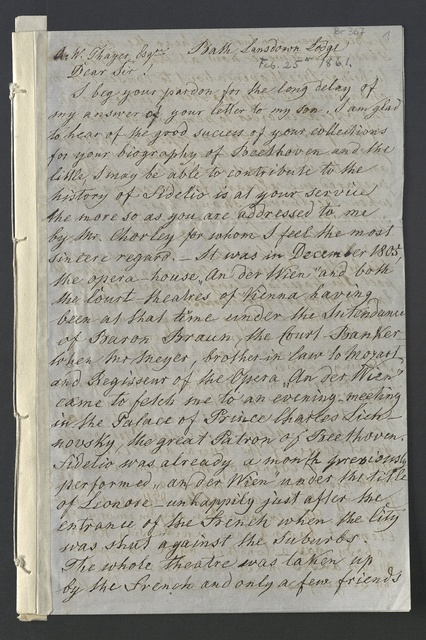 Br 367
1
A. W. Thayer Esqre Bath, Lansdown Lodge
Feb. 25th 1861.
Dear Sir!
I beg your pardon for the long delay of
my answer of your letter to my son. I am glad
to hear of the good success of your collections
for your biography of Beethoven and the
little I may be able to contribute to the
history of Fidelio is at your service
the more so as you are addressed to me
by Mr. Chorley for whom I feel the most
sincere regard. — It was in December 1805,
the opera-house „An der Wien" and both
the Court theatres of Vienna having
been at that time under the Intendance
of Baron Braun, the Court-Banker
when Mr Meyer, brother-in law to Mozart
and Regisseur of the Opera „An der Wien"
came to fetch me to an evening-meeting
in the Palace of Prince Charles Lich-
novsky, the great Patron of Beethoven.
Fidelio was already a month previously
performed „an der Wien" under the title
of Leonore — unhappily just after the
entrance of the French when the City
was shut against the Suburbs.
The whole theatre was taken up
by the French and only a few friends